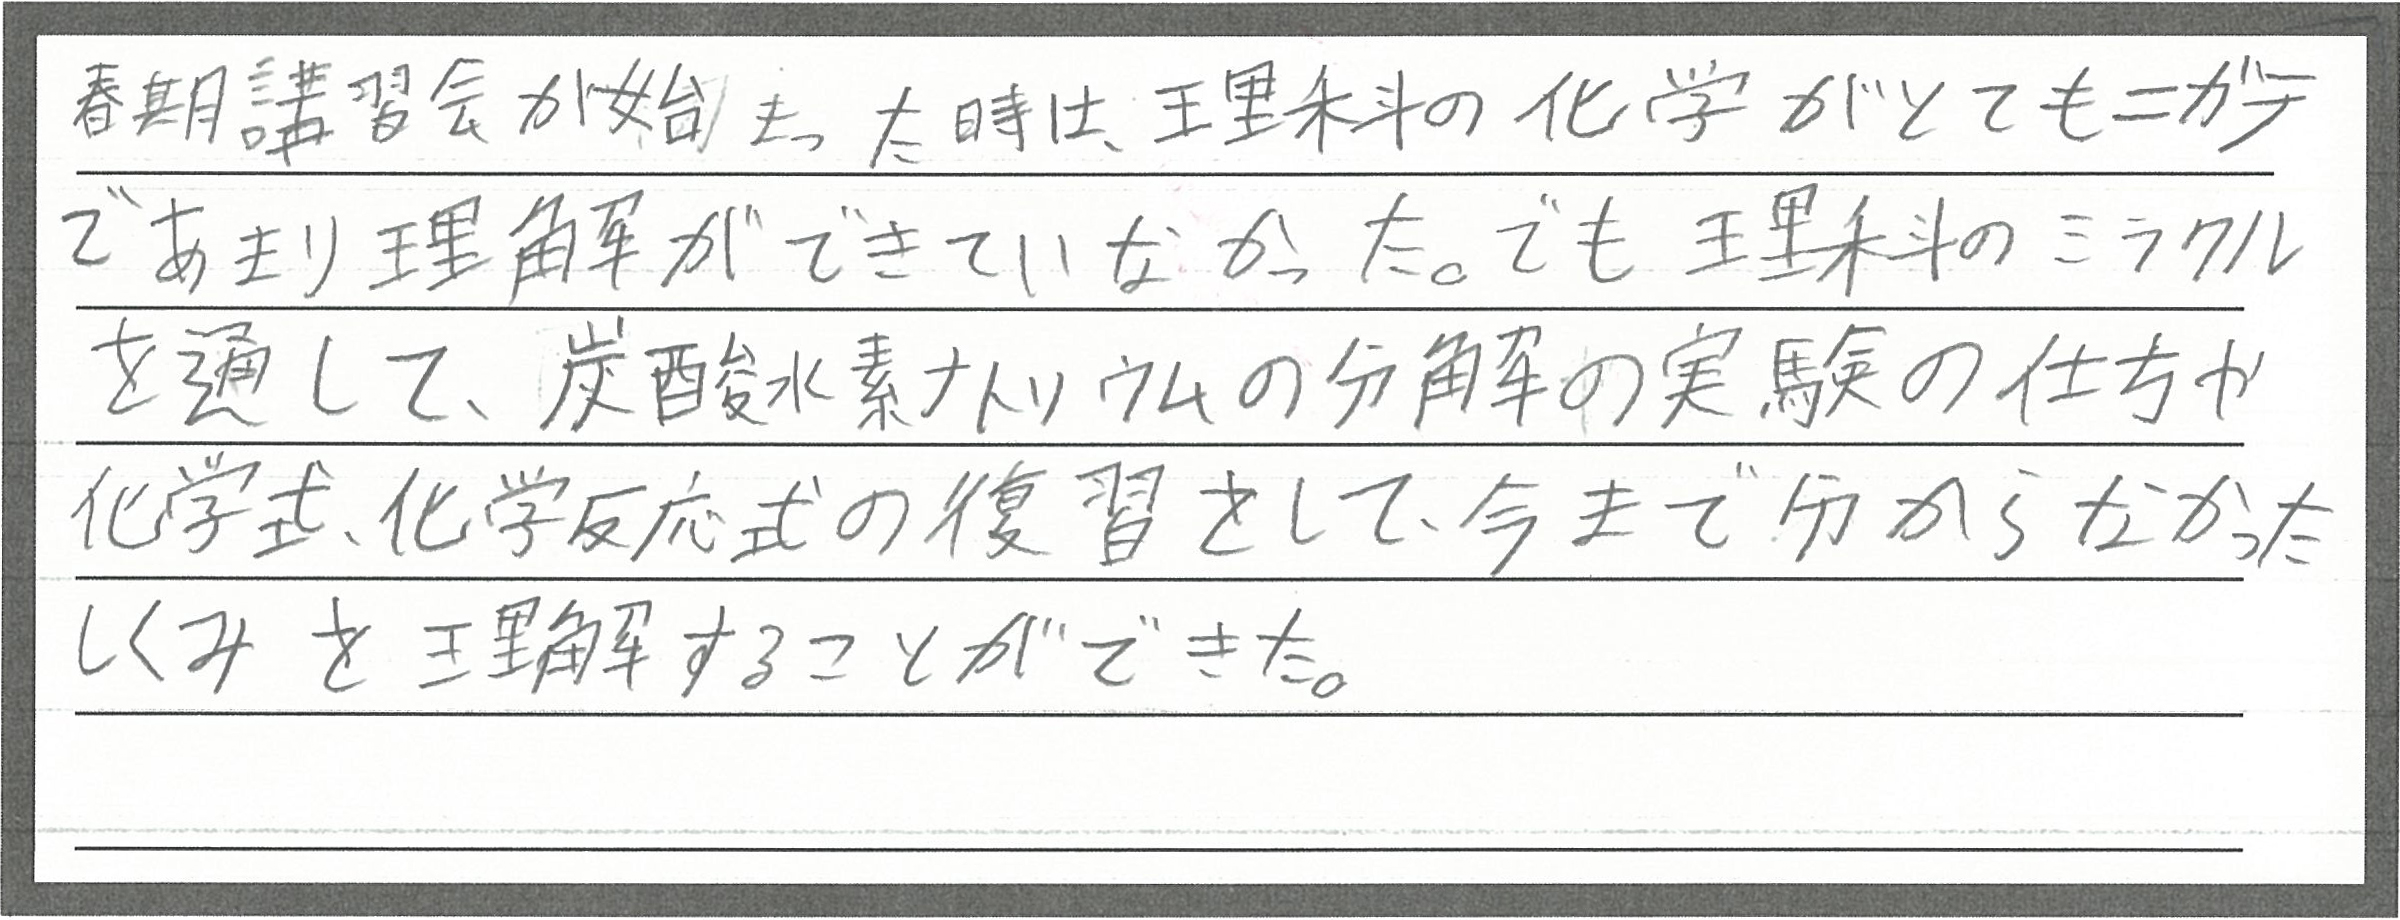 春期講習会が始まった時は、理科の化学がとてもニガテ
であまり理解ができていなかった。でも理科のミラクル
を通して、炭酸水素ナトリウムの分解の実験の仕方や
化学式、化学反応式の復習をして、今まで分からなかった
しくみを理解することができた。